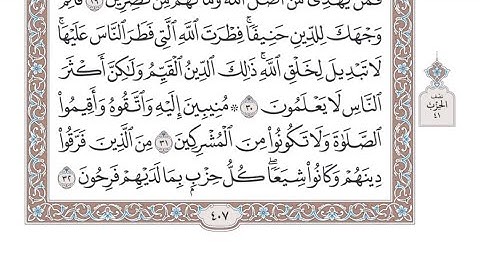 فَمَن يَهْدِى مَنْ أَضَلَّ ٱللَّهُ وَمَا لَهُم مِّن نَّـٰصِرِينَ ٢٩ فَأَقِمْ
وَجْهَكَ لِلدِّينِ حَنِيفًا ۚ فِطْرَتَ ٱللَّهِ ٱلَّتِى فَطَرَ ٱلنَّاسَ عَلَيْهَا ۚ
لَا تَبْدِيلَ لِخَلْقِ ٱللَّهِ ۚ ذَٰلِكَ ٱلدِّينُ ٱلْقَيِّمُ وَلَـٰكِنَّ أَكْثَرَ
ٱلنَّاسِ لَا يَعْلَمُونَ ٣٠ ۞ مُنِيبِينَ إِلَيْهِ وَٱتَّقُوهُ وَأَقِيمُوا۟
ٱلصَّلَوٰةَ وَلَا تَكُونُوا۟ مِنَ ٱلْمُشْرِكِينَ ٣١ مِنَ ٱلَّذِينَ فَرَّقُوا۟
دِينَهُمْ وَكَانُوا۟ شِيَعًا ۖ كُلُّ حِزْبٍۭ بِمَا لَدَيْهِمْ فَرِحُونَ ٣٢
نصف
الحزب
٤١
٤٠٧